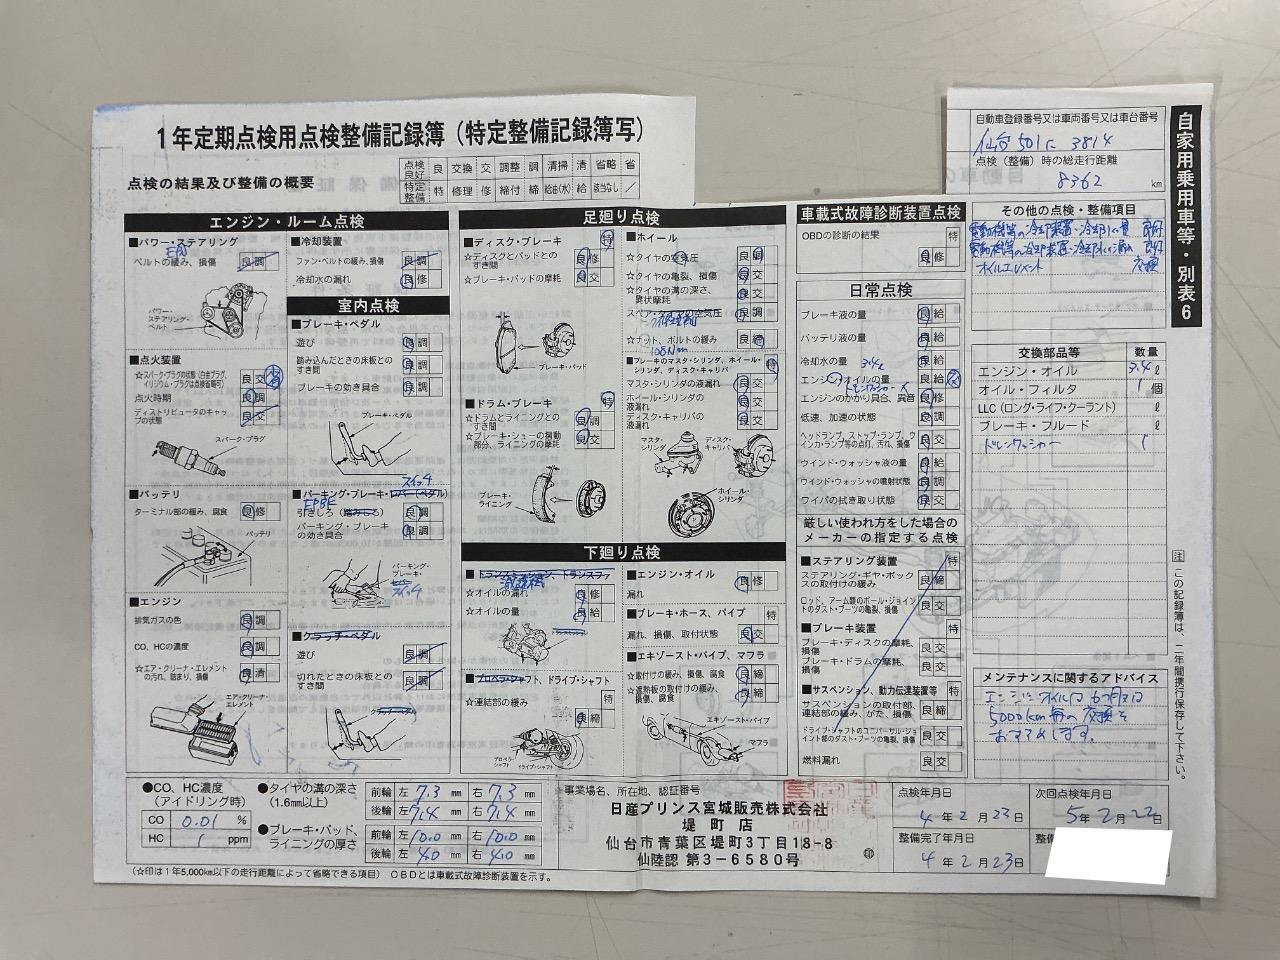 1年定期点検用点検整備記録簿（特定整備記録簿写）
点検の結果及び整備の概要
点検良好 良 交換 交 調整 調 清掃 清 省略 省
特定整備 特 修理 修 締付 締 給油(水) 給 該当なし ／
自動車登録番号又は車両番号又は車台番号
仙台 501に 3814
点検（整備）時の総走行距離
8362 km
自家用乗用車等・別表6
エンジン・ルーム点検
■パワー・ステアリング
EPS
ベルトの緩み、損傷 良 調
パワーステアリング・ベルト
■点火装置
☆スパーク・プラグの状態（白金プラグ、イリジウム・プラグは点検省略可） 良 交 省
点火時期 良 調
ディストリビュータのキャップの状態 良 交
スパーク・プラグ
■バッテリ
ターミナル部の緩み、腐食 良 修
バッテリ
■エンジン
排気ガスの色 良 調
CO、HCの濃度 良 調
☆エア・クリーナ・エレメントの汚れ、詰まり、損傷 良 清
エア・クリーナ・エレメント
■冷却装置
ファン・ベルトの緩み、損傷 良 調
冷却水の漏れ 良 修
室内点検
■ブレーキ・ペダル
遊び 良 調
踏み込んだときの床板とのすき間 良 調
ブレーキの効き具合 良 調
ブレーキ・ペダル
スイッチ
■パーキング・ブレーキ・レバー（ペダル）
引きしろ（踏みしろ） 良 調
パーキング・ブレーキの効き具合 良 調
パーキング・ブレーキ・
スイッチ
■クラッチ・ペダル
遊び 良 調
切れたときの床板とのすき間 良 調
足廻り点検
■ディスク・ブレーキ 特
☆ディスクとパッドとのすき間 良 修
☆ブレーキ・パッドの摩耗 良 交
ブレーキ・パッド
■ドラム・ブレーキ 特
☆ドラムとライニングとのすき間 良 調
☆ブレーキ・シューの摺動部分、ライニングの摩耗 良 交
ブレーキ・ライニング
■ホイール
☆タイヤの空気圧 良 調
☆タイヤの亀裂、損傷 良 交
☆タイヤの溝の深さ、異状摩耗 良 交
スペア・タイヤの空気圧 良 調
☆ナット、ボルトの緩み 良 締
108Nm
■ブレーキのマスタ・シリンダ、ホイール・シリンダ、ディスク・キャリパ 特
マスタ・シリンダの液漏れ 良 交
ホイール・シリンダの液漏れ 良 交
ディスク・キャリパの液漏れ 良 交
マスタ・シリンダ
ディスク・キャリパ
ホイール・シリンダ
下廻り点検
■トランスミッション、トランスファ
減速機
☆オイルの漏れ 良 修
☆オイルの量 良 給
■プロペラ・シャフト、ドライブ・シャフト
☆連結部の緩み 良 締
プロペラ・シャフト
ドライブ・シャフト
■エンジン・オイル
漏れ 良 修
■ブレーキ・ホース、パイプ 特
漏れ、損傷、取付状態 良 交
■エキゾースト・パイプ、マフラ
☆取付けの緩み、損傷、腐食 良 締
☆遮熱板の取付けの緩み、損傷、腐食 良 締
エキゾースト・パイプ
マフラ
車載式故障診断装置点検
OBDの診断の結果 特
良 修
日常点検
ブレーキ液の量 良 給
バッテリ液の量 良 給
冷却水の量 良 給
3.4ℓ
エンジン・オイルの量 良 給 交
エンジンのかかり具合、異音 良 修
低速、加速の状態 良 調
ヘッドランプ、ストップ・ランプ、ウインカ・ランプ等の点灯、汚れ、損傷 良 交
ウインド・ウォッシャ液の量 良 給
ウインド・ウォッシャの噴射状態 良 調
ワイパの拭き取り状態 良 交
厳しい使われ方をした場合のメーカーの指定する点検
■ステアリング装置 特
ステアリング・ギヤ・ボックスの取付けの緩み 良 締
ロッド、アーム類のボール・ジョイントのダスト・ブーツの亀裂、損傷 良 交
■ブレーキ装置 特
ブレーキ・ディスクの摩耗、損傷 良 交
ブレーキ・ドラムの摩耗、損傷 良 交
■サスペンション、動力伝達装置等 特
サスペンションの取付部、連結部の緩み、がた、損傷 良 締
ドライブ・シャフトのユニバーサル・ジョイント部のダスト・ブーツの亀裂、損傷 良 交
燃料漏れ 良 交
その他の点検・整備項目
電動機等の冷却装置・冷却水の量 良好
電動機等の冷却装置・冷却水の漏れ 良好
オイルエレメント 交換
交換部品等 数量
エンジン・オイル 3.4ℓ
オイル・フィルタ 1個
LLC（ロング・ライフ・クーラント） ℓ
ブレーキ・フルード ℓ
ドレンワッシャー 1
メンテナンスに関するアドバイス
エンジンオイルは6カ月又は
5000km毎の交換を
おすすめします。
注 この記録簿は、二年間携行保存して下さい。
●CO、HC濃度（アイドリング時）
CO 0.01 %
HC 1 ppm
●タイヤの溝の深さ（1.6mm以上）
前輪 左 7.3 mm 右 7.3 mm
後輪 左 7.4 mm 右 7.4 mm
●ブレーキ・パッド、ライニングの厚さ
前輪 左 10.0 mm 右 10.0 mm
後輪 左 4.0 mm 右 4.0 mm
☆事業場名、所在地、認証番号
日産プリンス宮城販売株式会社
堤町店
仙台市青葉区堤町3丁目18-8
仙陸認 第3-6580号
㊞
点検年月日
4年2月23日
次回点検年月日
5年2月22日
整備完了年月日
4年2月23日
整備
（☆印は1年5,000km以下の走行距離によって省略できる項目） OBDとは車載式故障診断装置を示す。